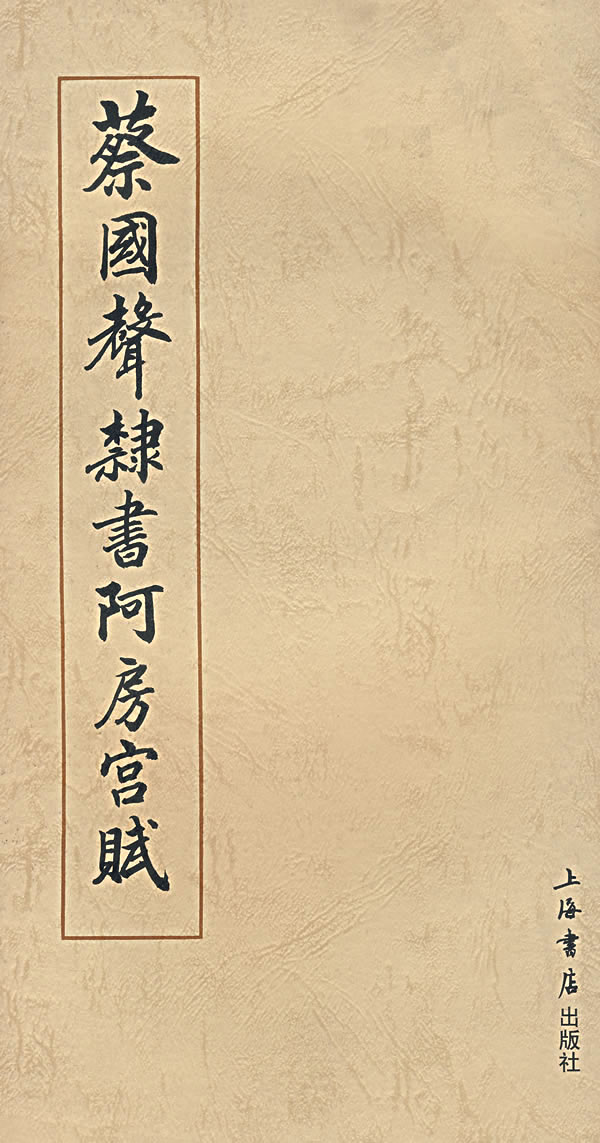 蔡國聲隸書阿房宫賦
上海書店出版社